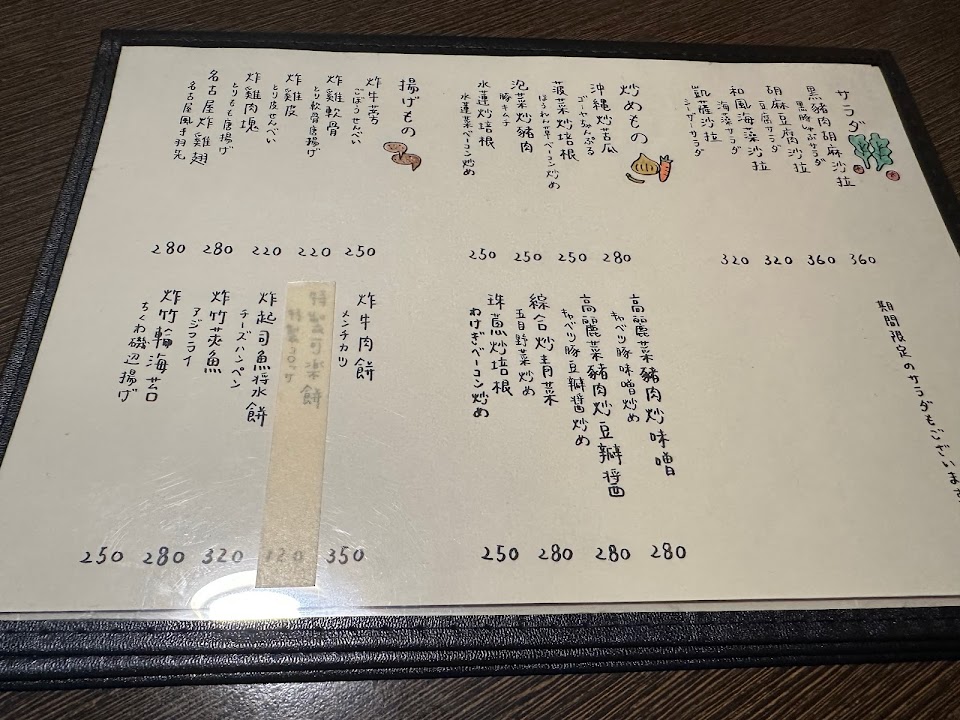 サラダ
黒豬肉胡麻沙拉
黒豚しゃぶサラダ
360
胡麻豆腐沙拉
豆腐サラダ
360
和風海藻沙拉
海藻サラダ
320
凱薩沙拉
シーザーサラダ
320
期間限定のサラダもございます
炒めもの
沖縄炒苦瓜
ゴーヤちゃんぷる
280
菠菜炒培根
ほうれん草ベーコン炒め
250
泡菜炒豬肉
豚キムチ
250
水蓮炒培根
水蓮菜ベーコン炒め
250
高麗菜豬肉炒味噌
キャベツ豚味噌炒め
280
高麗菜豬肉炒豆瓣醤
キャベツ豚豆瓣醤炒め
280
綜合炒青菜
五目野菜炒め
280
珠蔥炒培根
わけぎベーコン炒め
250
揚げもの
炸牛蒡
ごぼうせんべい
250
炸雞軟骨
とり軟骨唐揚げ
220
炸雞皮
とり皮せんべい
220
炸雞肉塊
とりもも唐揚げ
280
名古屋炸雞翅
名古屋風手羽先
280
炸牛肉餅
メンチカツ
350
特製可楽餅
特製コロッケ
120
炸起司魚漿餅
チーズハンペン
320
炸竹莢魚
アジフライ
280
炸竹輪海苔
ちくわ磯辺揚げ
250